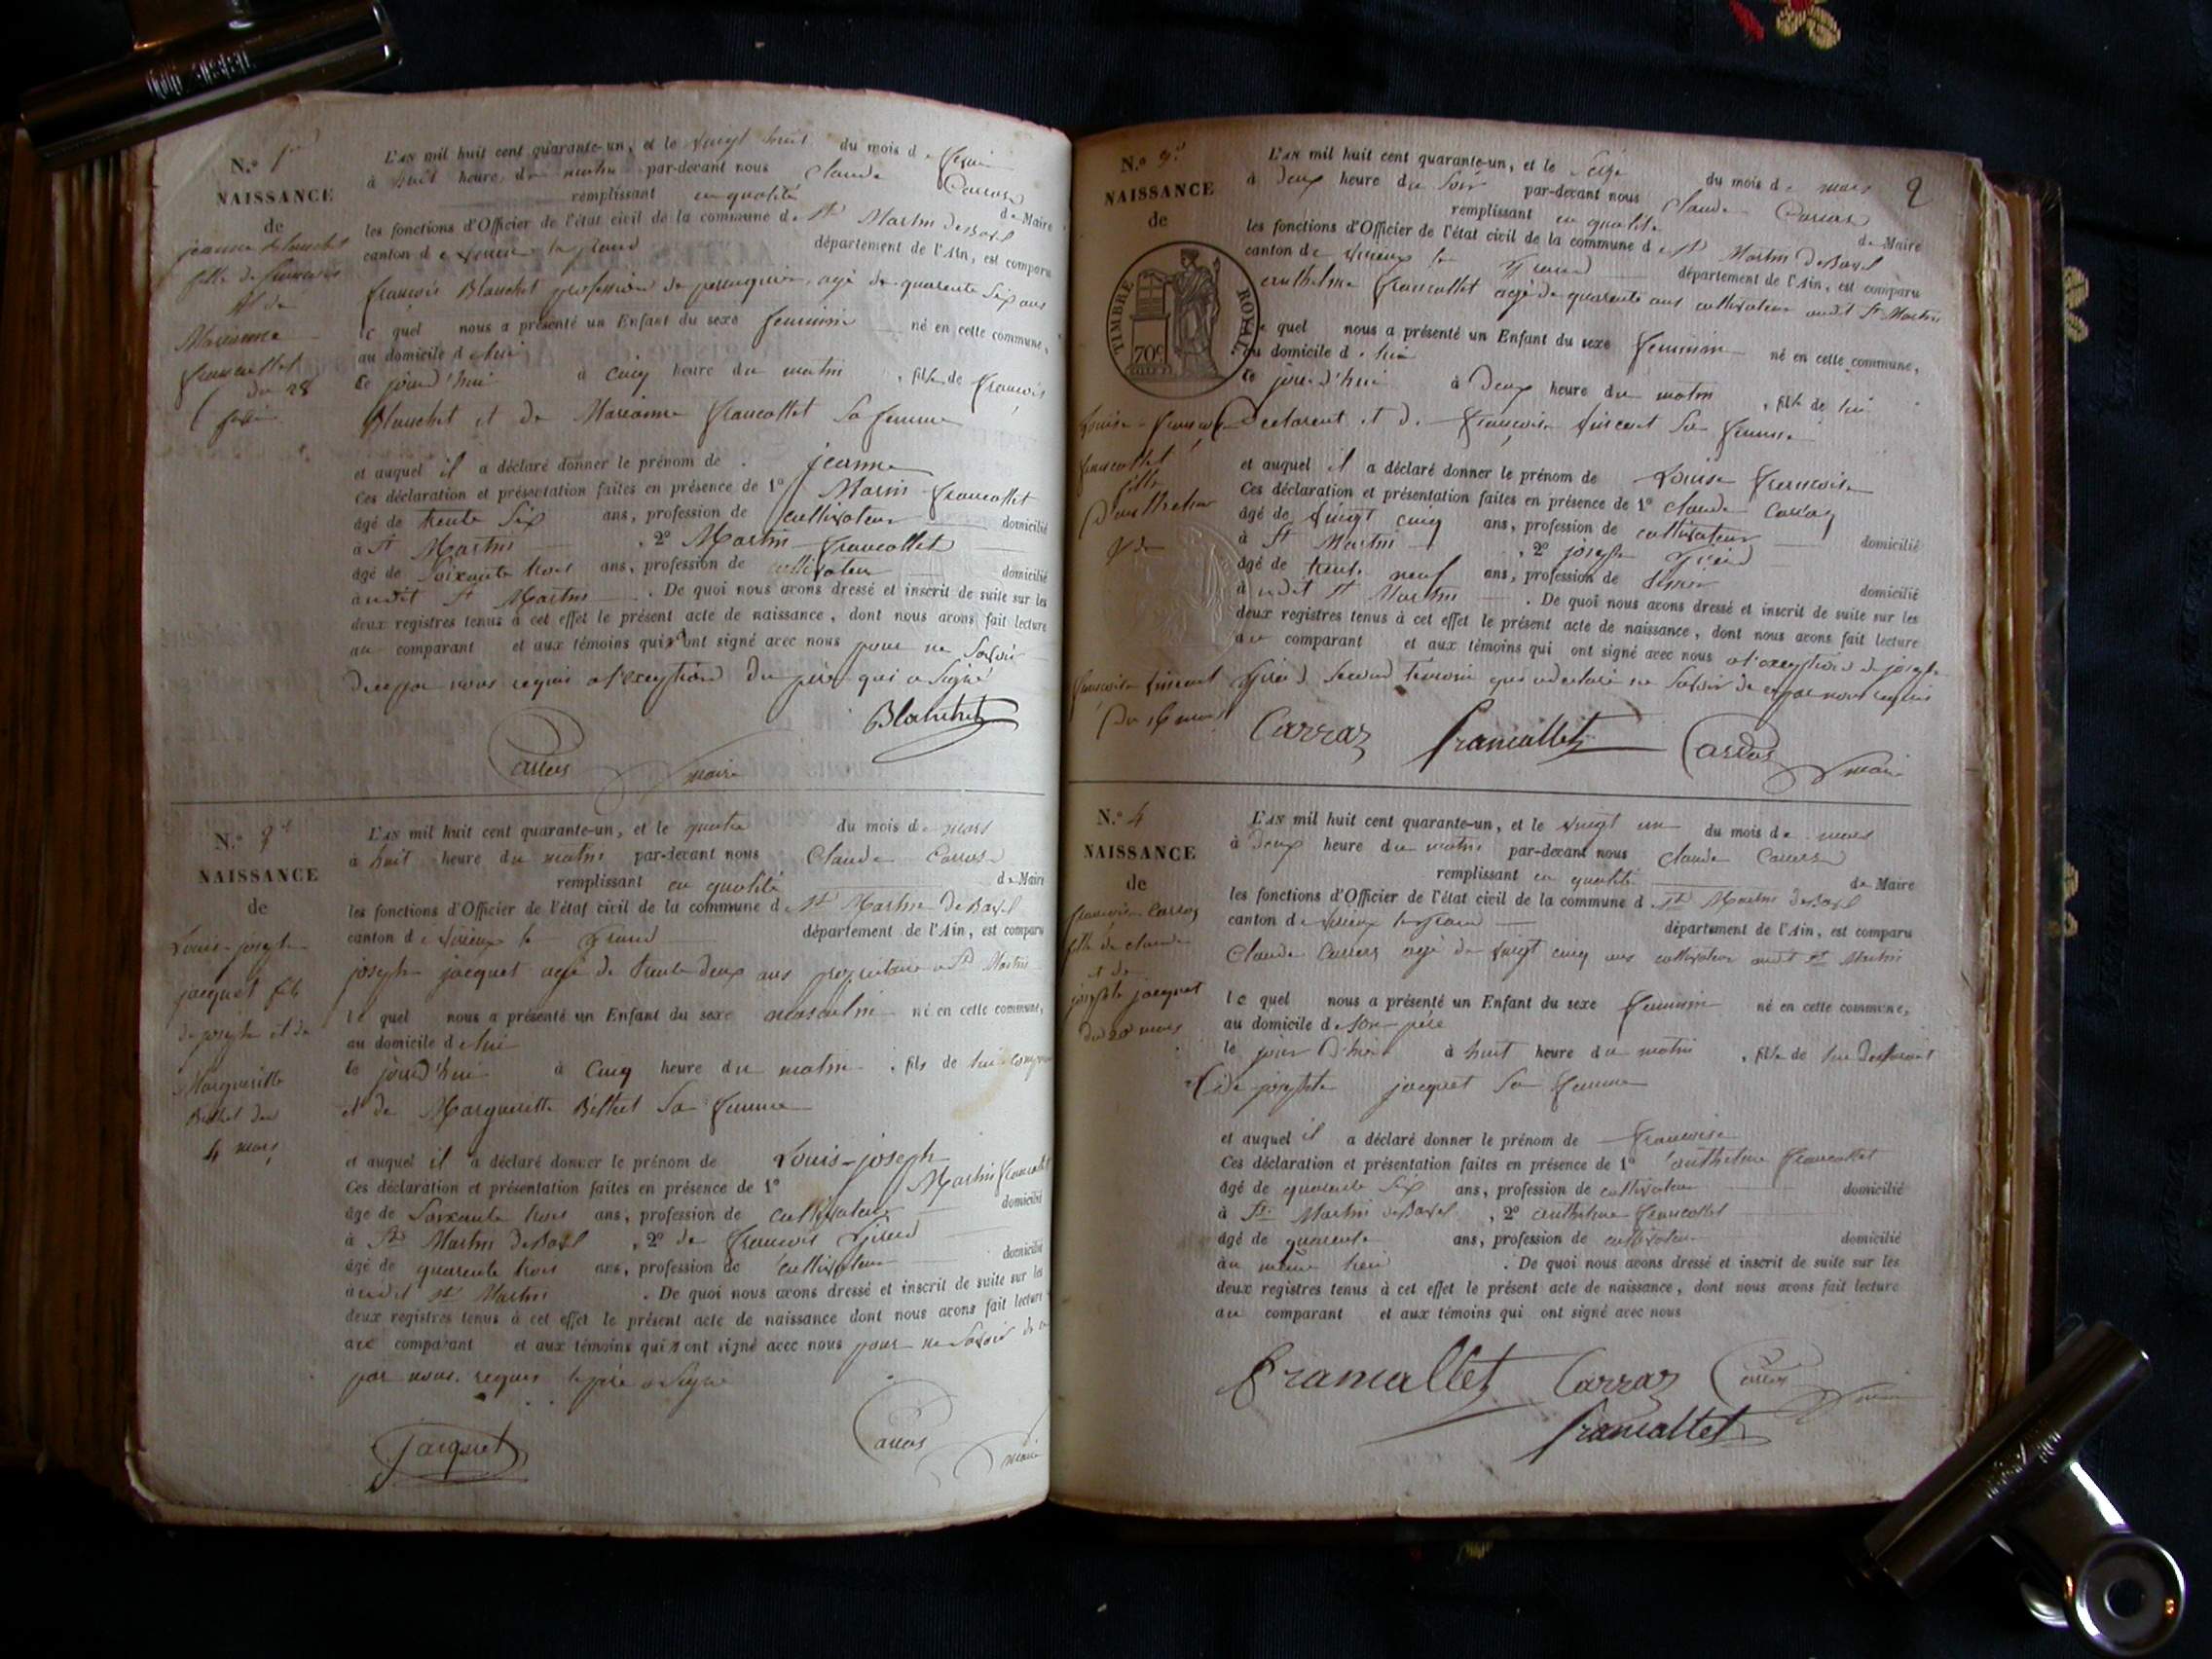 N.º 1er
NAISSANCE
de
jeanne Blanchet
fille de francois
et de
Marianne
francallet
du 28
L'AN mil huit cent quarante-un, et le vingt huit du mois d
à huit heure du matin par-devant nous Claude
remplissant en qualité de Maire
les fonctions d'Officier de l'état civil de la commune de St Martin de Bavel
canton de virieu le grand département de l'Ain, est comparu
françois Blanchet profession de perruquier, agé de quarente six ans
le quel nous a présenté un Enfant du sexe feminin né en cette commune,
au domicile de lui
le jourd'hui à cinq heure du matin , fille de françois
Blanchet et de Marianne francallet sa femme
et auquel il a déclaré donner le prénom de jeanne
Ces déclaration et présentation faites en présence de 1º Marin francallet
âgé de trente six ans, profession de cultivateur domicilié
à St Martin , 2º Martin francallet
âgé de soixante trois ans, profession de cultivateur domicilié
audit St Martin . De quoi nous avons dressé et inscrit de suite sur les
deux registres tenus à cet effet le présent acte de naissance, dont nous avons fait lecture
au comparant et aux témoins qui ont signé avec nous pour ne savoir
de ce par nous requis a l'exception du père qui a signé
Blanchet
maire
N.º 2d
NAISSANCE
de
Louis-joseph
jacquet fils
de joseph et de
Margueritte
du
4 mars
L'AN mil huit cent quarante-un, et le quatre du mois de mars
à huit heure du matin par-devant nous Claude
remplissant en qualité de Maire
les fonctions d'Officier de l'état civil de la commune de St Martin de Bavel
canton de virieux le Grand département de l'Ain, est comparu
joseph jacquet agé de trente deux ans propriétaire a St Martin
le quel nous a présenté un Enfant du sexe masculin né en cette commune,
au domicile de lui
le jourd'hui à cinq heure du matin , fils de lui
et de Margueritte sa femme
et auquel il a déclaré donner le prénom de Louis-joseph
Ces déclaration et présentation faites en présence de 1º Martin francallet
âgé de soixante trois ans, profession de cultivateur domicilié
à St Martin de Bavel , 2º de francois
âgé de quarente trois ans, profession de cultivateur domicilié
audit St Martin . De quoi nous avons dressé et inscrit de suite sur les
deux registres tenus à cet effet le présent acte de naissance dont nous avons fait lecture
au comparant et aux témoins qui ont signé avec nous pour ne savoir de ce
par nous requis le père a signé
Jacquet
maire
2
N.º 3e
NAISSANCE
de
TIMBRE ROYAL
70c
Louise-francoise
francallet
fille
d'anthelme
et de
francoise
du 16 mars
L'AN mil huit cent quarante-un, et le seize du mois de mars
à deux heure du soir par-devant nous Claude
remplissant en qualité de Maire
les fonctions d'Officier de l'état civil de la commune de St Martin de Bavel
canton de virieux le Grand département de l'Ain, est comparu
anthelme francallet agé de quarente ans cultivateur audit St Martin
le quel nous a présenté un Enfant du sexe feminin né en cette commune,
au domicile de lui
le jourd'hui à deux heure du matin , fille de lui
declarent et de françoise sa femme
et auquel il a déclaré donner le prénom de Louise francoise
Ces déclaration et présentation faites en présence de 1º Claude Carraz
âgé de vingt cinq ans, profession de cultivateur domicilié
à St Martin , 2º joseph
âgé de trente neuf ans, profession de domicilié
audit St Martin . De quoi nous avons dressé et inscrit de suite sur les
deux registres tenus à cet effet le présent acte de naissance, dont nous avons fait lecture
au comparant et aux témoins qui ont signé avec nous a l'exception de joseph
second temoin qui a declaré ne savoir de ce par nous requis
Carraz francallet
maire
N.º 4
NAISSANCE
de
françoise Carraz
fille de claude
et de
josephte jacquet
du 20 mars
L'AN mil huit cent quarante-un, et le vingt un du mois de mars
à deux heure du matin par-devant nous Claude
remplissant en qualité de Maire
les fonctions d'Officier de l'état civil de la commune de St Martin de Bavel
canton de virieux le grand département de l'Ain, est comparu
Claude Carraz agé de vingt cinq ans cultivateur audit St Martin
le quel nous a présenté un Enfant du sexe feminin né en cette commune,
au domicile de son père
le jour d'hier à huit heure du matin , fille de lui
de josephte jacquet sa femme
et auquel il a déclaré donner le prénom de francoise
Ces déclaration et présentation faites en présence de 1º anthelme francallet
âgé de quarente six ans, profession de cultivateur domicilié
à St Martin de Bavel , 2º anthelme francallet
âgé de quarente ans, profession de cultivateur domicilié
au même lieu . De quoi nous avons dressé et inscrit de suite sur les
deux registres tenus à cet effet le présent acte de naissance, dont nous avons fait lecture
au comparant et aux témoins qui ont signé avec nous
francallet Carraz
francallet